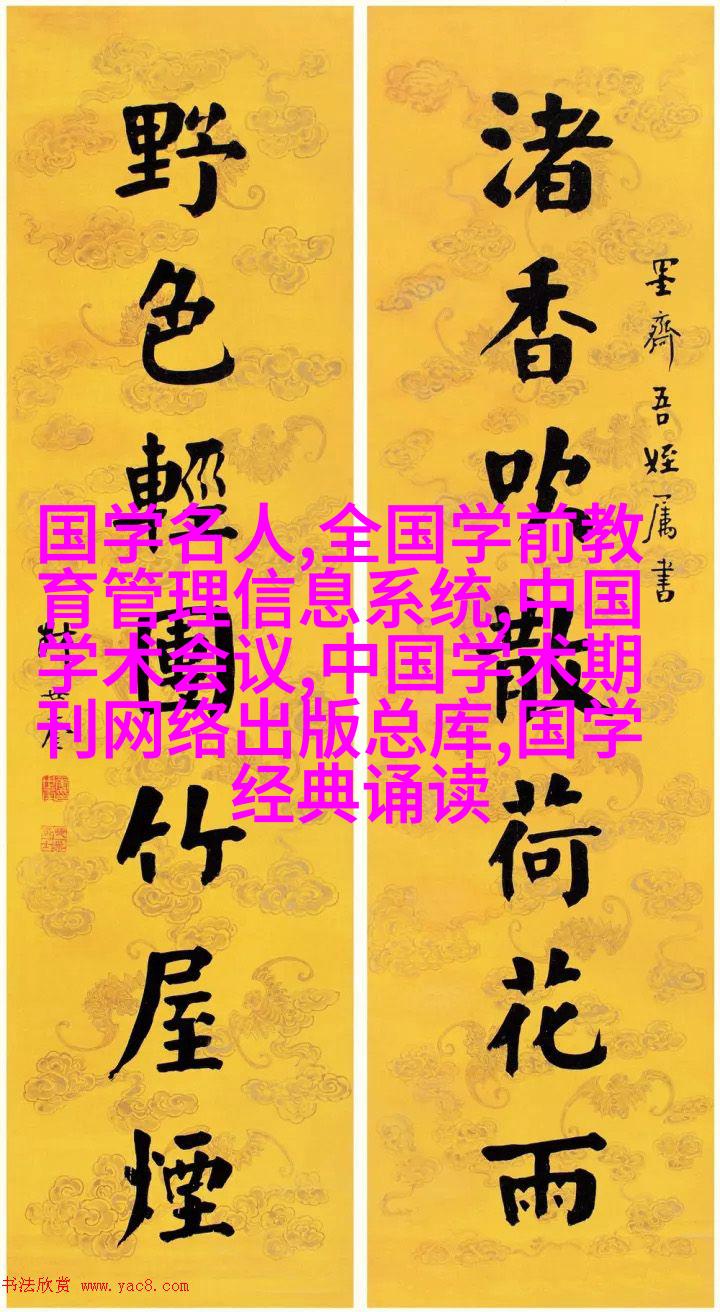 渚香吹散荷花雨
墨齊吾姪属書
野色輕團竹屋煙
華世奎
国学名人,全国学前教
育管理信息系统,中国
学术会议,中国学术期
刊网络出版总库,国学
经典诵读
书法欣赏 www.yac8.com